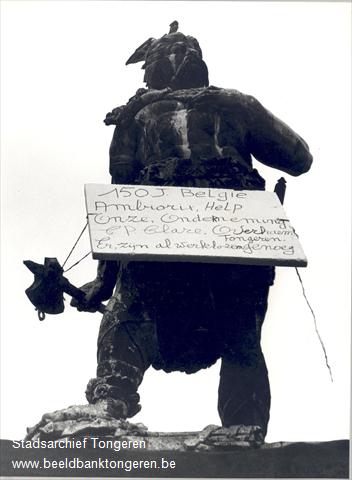 150 J. België
Ambiorix, Help
Onze, Onderneming
CP Clare, Overhaem
Tongeren.
Er zijn al werklozen genoeg
Stadsarchief Tongeren
www.beeldbanktongeren.be